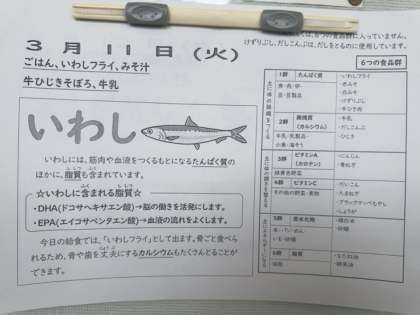 は、6つの食品群に入っていません。
けずりぶし、だしこんぶは、だしをとるのに使用しています。
3月11日(火)
ごはん、いわしフライ、みそ汁
牛ひじきそぼろ、牛乳
いわし
いわしには、筋肉や血液をつくるもとになるたんぱく質の
ほかに、脂質も含まれています。
☆いわしに含まれる脂質☆
・DHA(ドコサヘキサエン酸)→脳の働きを活発にします。
・EPA(エイコサペンタエン酸)→血液の流れをよくします。
今日の給食では、「いわしフライ」として出ます。骨ごと食べら
れるため、骨や歯を丈夫にするカルシウムもたくさんとることが
できます。
6つの食品群
1群 たんぱく質
魚・肉・卵・
豆・豆製品
・いわしフライ
・赤みそ
・白みそ
・けずりぶし
・牛ひき肉
2群 無機質
(カルシウム)
牛乳・乳製品・
小魚・海そう
・牛乳
・だしこんぶ
・ひじき
3群 ビタミンA
(カロテン)
緑黄色野菜
・にんじん
・青ねぎ
4群 ビタミンC
その他の野菜・果物
・だいこん
・たまねぎ
・しょうが
5群 炭水化物
・精白米
・砂糖
6群 脂質